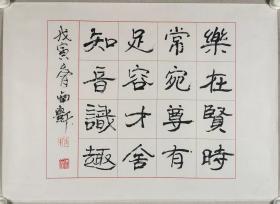 樂在賢時
常宛尊有
足容才舍
知音識趣
戊寅